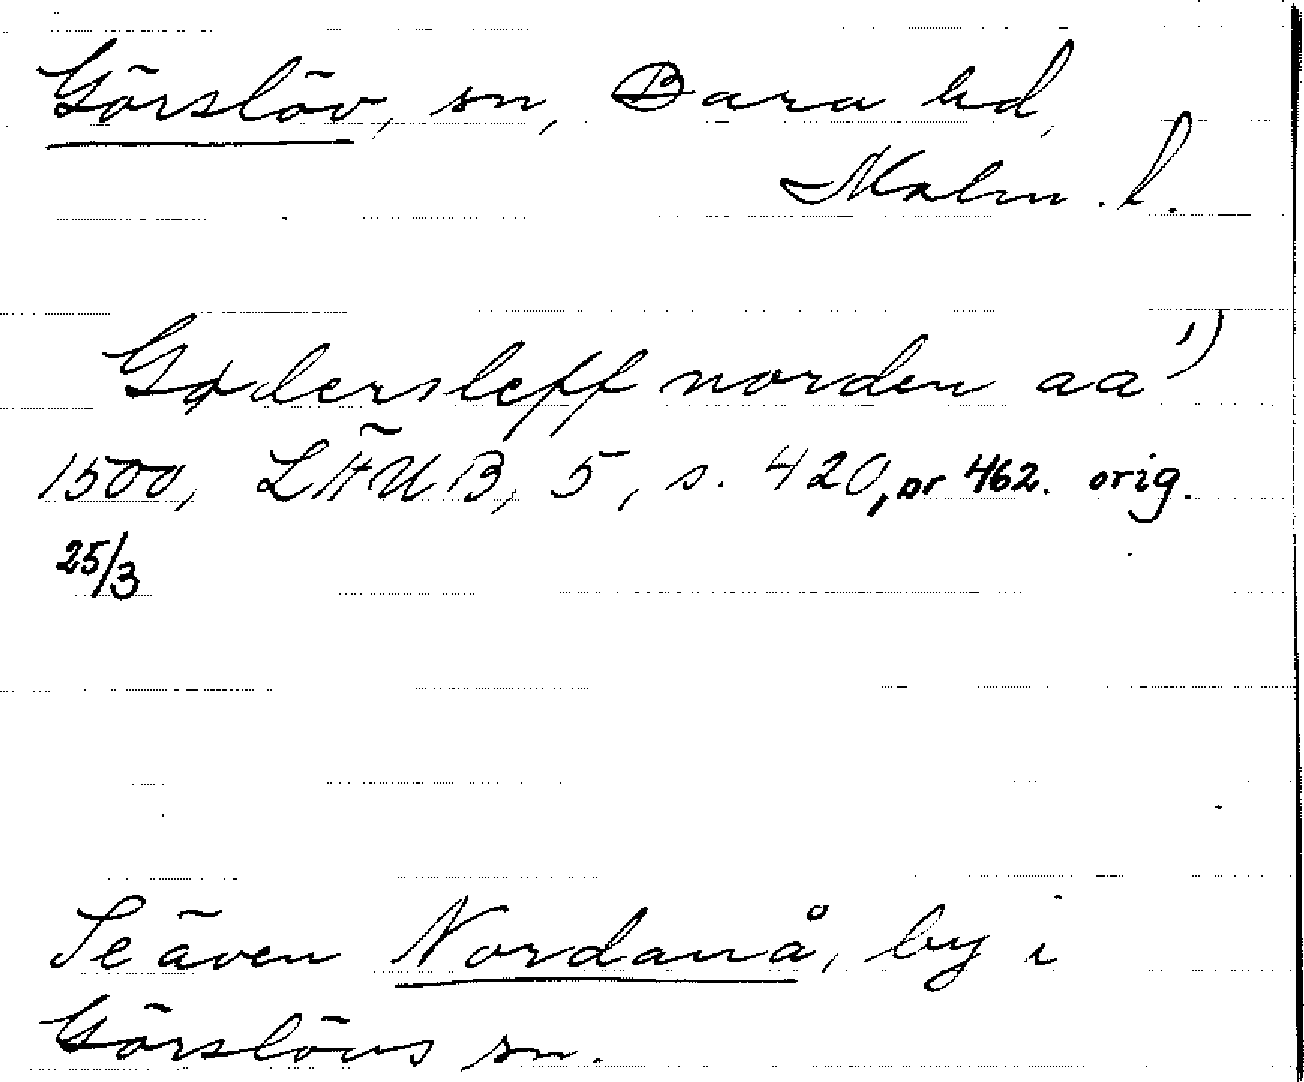 Görslöv, sn, Bara hd,
Malm. l.
Gødersleff norden aa 1)
1500, LÄUB, 5, s. 420, nr 462. orig.
25/3
Se även Nordanå, by i
Görslövs sn.